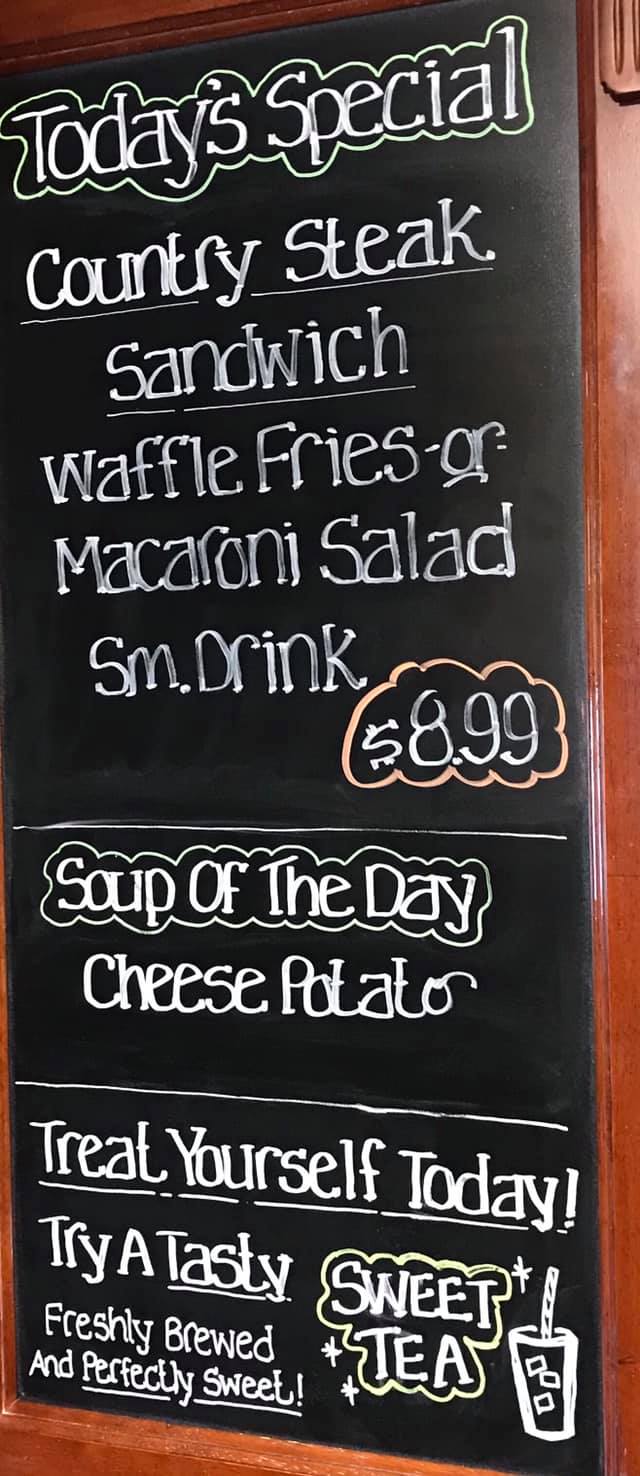 Today's Special
Country Steak
Sandwich
Waffle Fries-or-
Macaroni Salad
Sm. Drink
$8.99
Soup Of The Day
Cheese Potato
Treat Yourself Today!
Try A Tasty
SWEET
TEA
Freshly Brewed
And Perfectly Sweet!